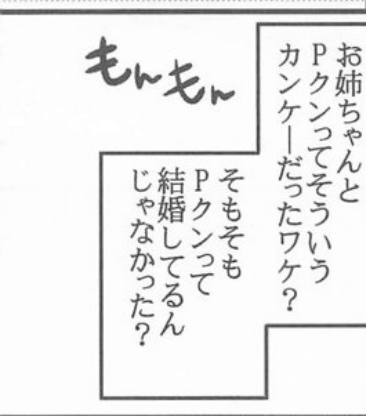 お姉ちゃんと
Pクンってそういう
カンケーだったワケ？
そもそも
Pクンって
結婚してるん
じゃなかった？
もんもん